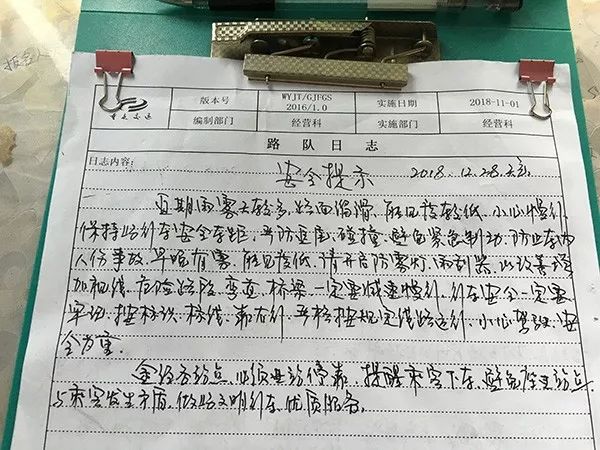 重庆高速
版本号 WYJT/GJFGS 2016/1.0 实施日期 2018-11-01
编制部门 经营科 实施部门 经营科
路队日志
日志内容:
安全提示 2018.12.28
近期雨雾天较多,路面湿滑,能见度较低,小心慢行,
保持好行车安全车距,严防追尾,碰撞,避免紧急制动,防止车内
人伤事故,早晚有雾,能见度低,请开启防雾灯,雨刮器,以改善
加视线,危险路段,弯道,桥梁,一定要减速慢行,行车安全一定要
牢记,按标识、标线,靠右行,严格按规定线路运行,小心驾驶,安
全为重。
途经各站点,必须进站停靠,提醒乘客下车,避免座过站点
与乘客发生矛盾,做好文明行车,优质服务。